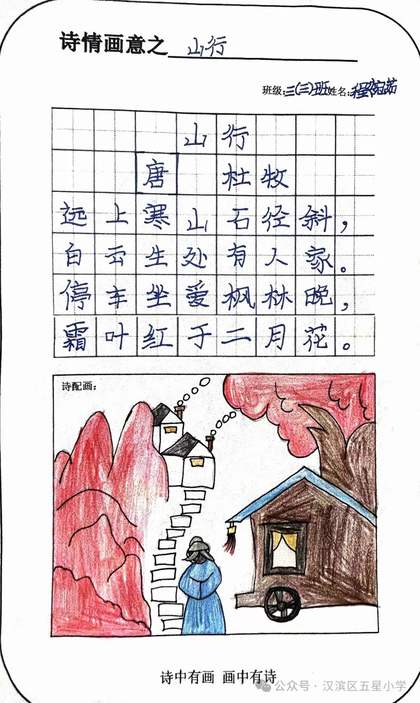 诗情画意之 山行
班级:三(三)班姓名:程
山行
唐 杜牧
远上寒山石径斜，
白云生处有人家。
停车坐爱枫林晚，
霜叶红于二月花。
诗配画：
诗中有画 画中有诗
公众号·汉滨区五星小学